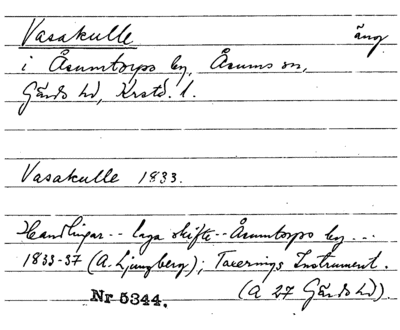 Vasakulle äng
i Åsumtorps by, Åsums sn,
Gärds hd, Krstd. l.
Vasakulle 1833.
Handlingar -- laga skifte -- Åsumtorps by ...
1833-37 (A. Ljungberg); Taxerings Instrument.
Nr 5344. (A 27 Gärds hd).